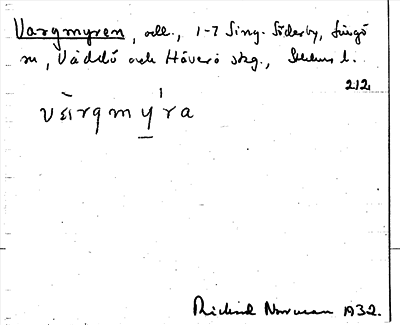 Vargmyren, odl., 1-7 Sing. Söderby, Singö
sn, Väddö och Häverö skg., Sthlms l.
212
värgmýra
Richard Norman 1932.